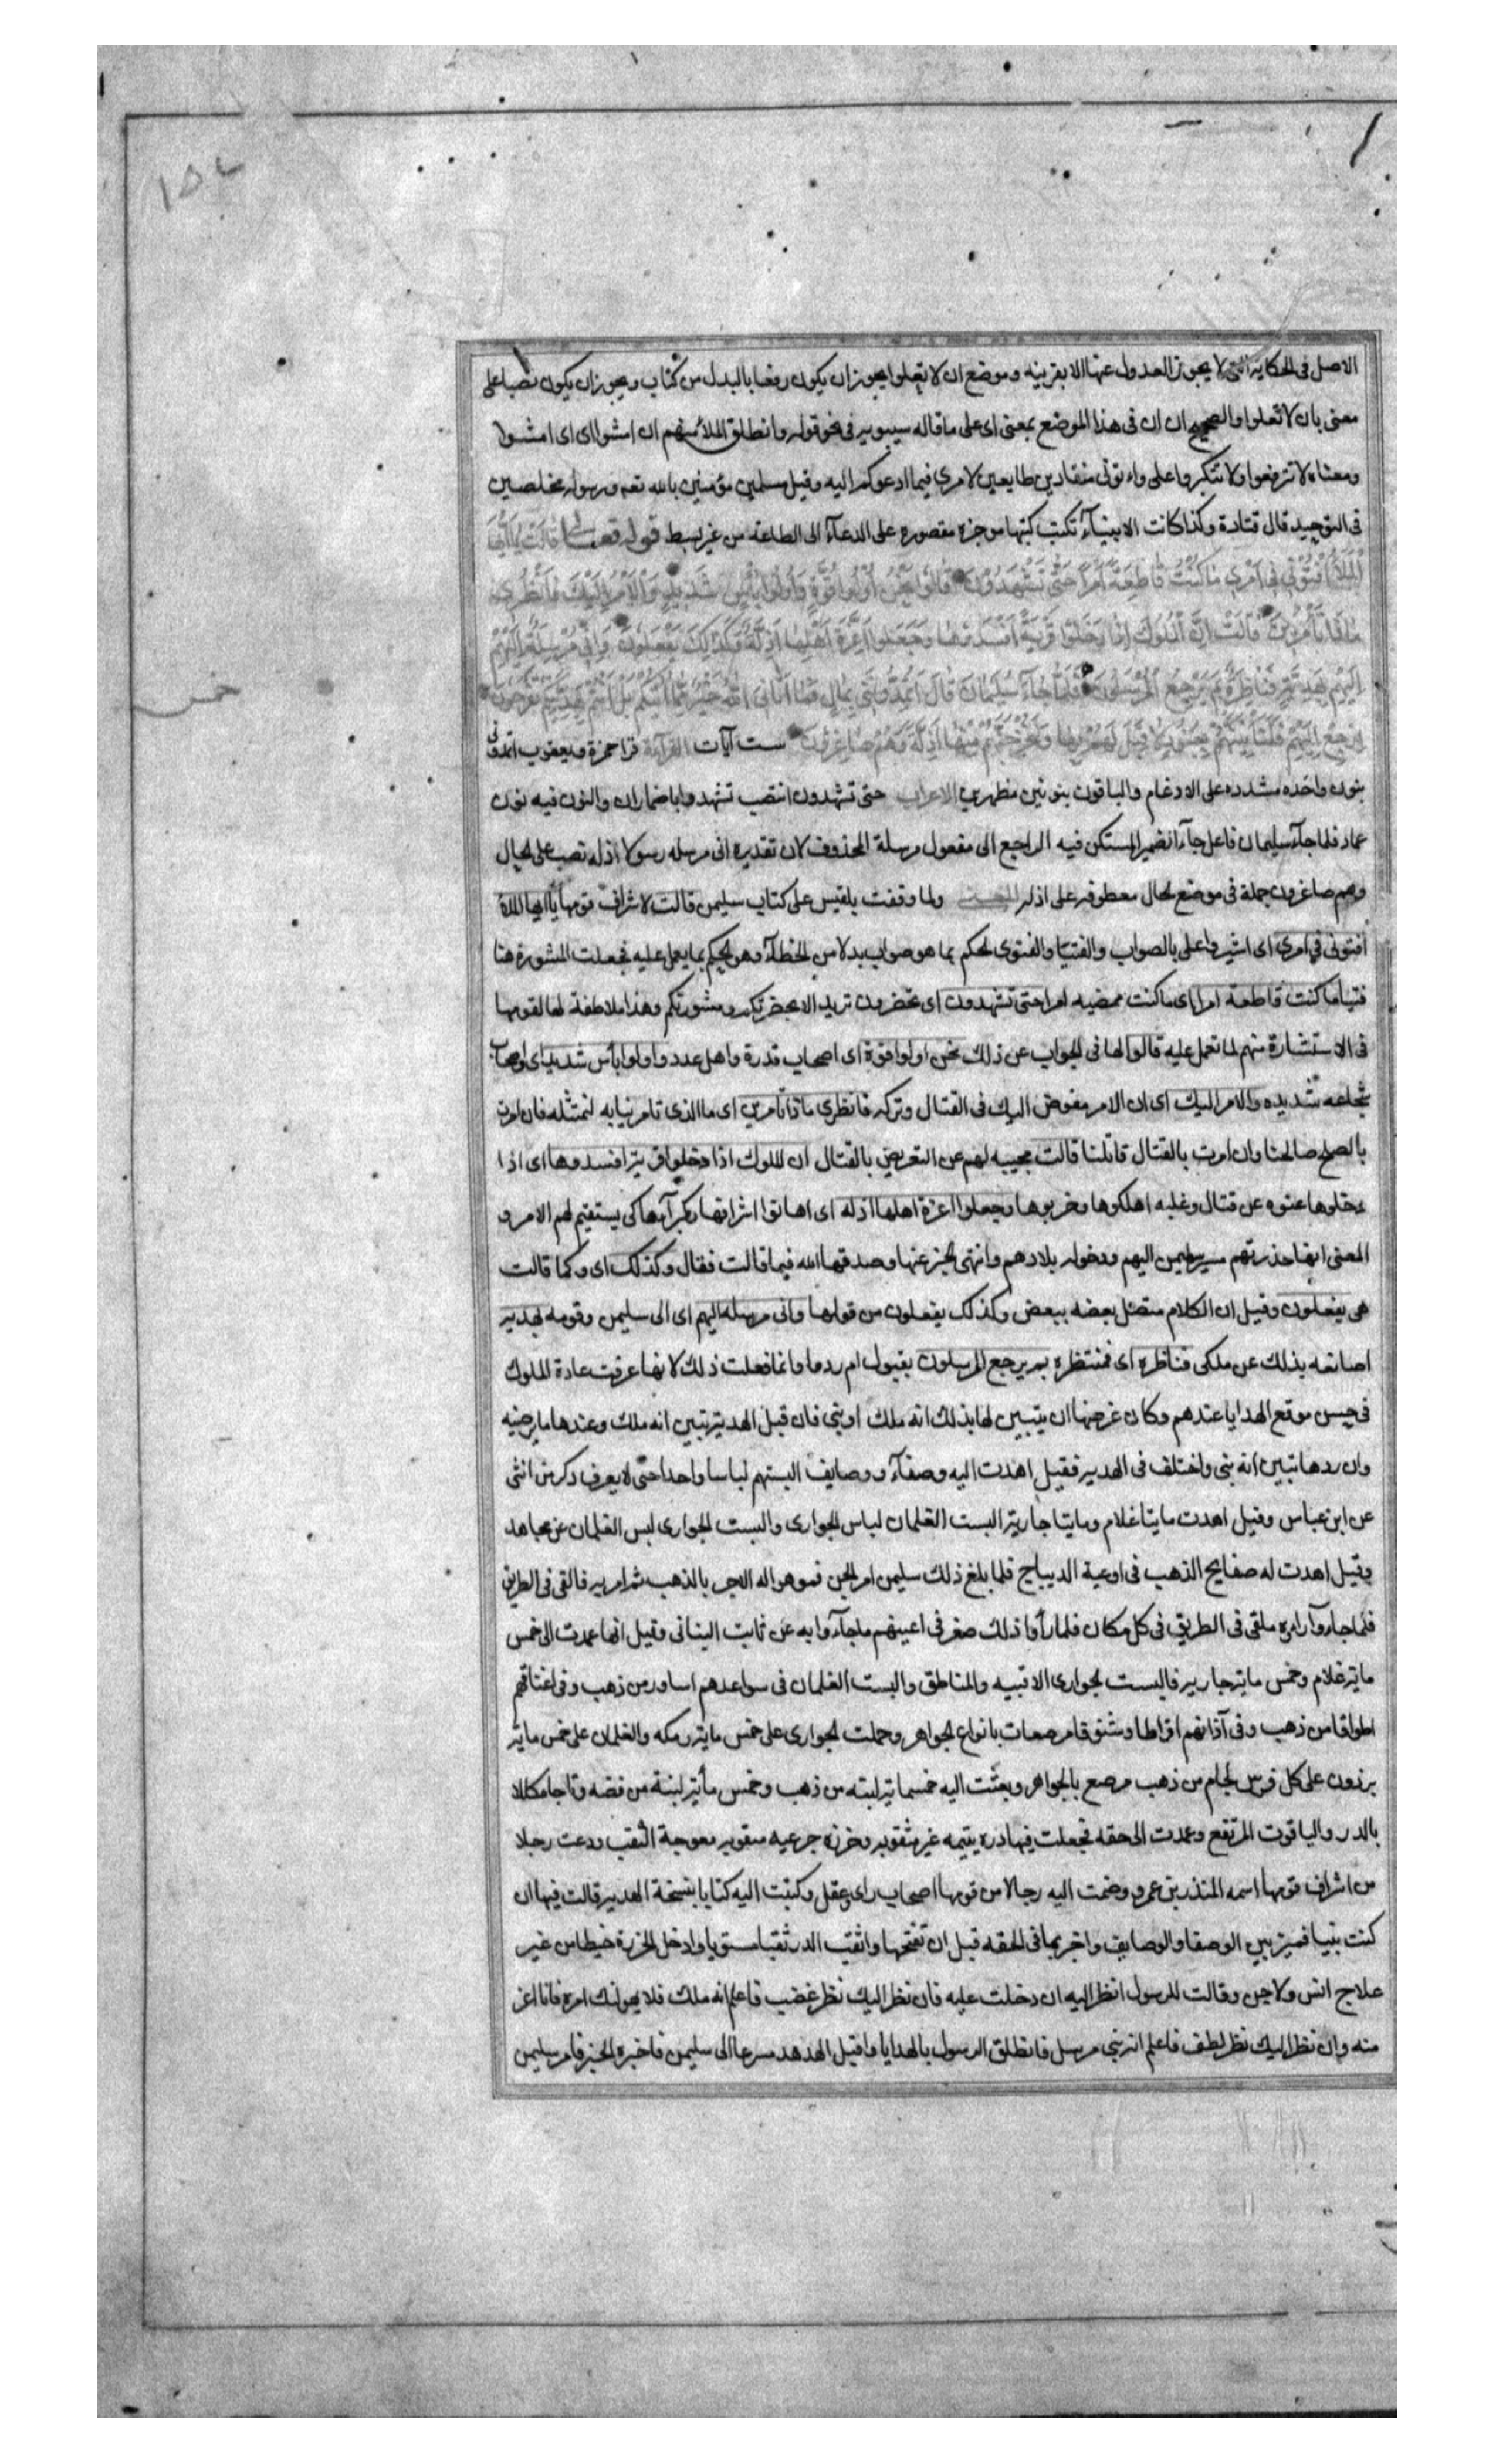 الاصل فى الحكاية التى لا يجوز العدول عنها الا بقرينه وموضع ان لا تعلوا يجوز ان يكون رفعا بالبدل من كتاب ويجوز ان يكون نصبا على
معنى بان لا تعلوا والصحيح ان ان فى هذا الموضع بمعنى اى على ما قاله سيبويه فى نحو قوله وانطلق الملأ منهم ان امشوا اى اى امشوا
ومعناه لا تترفعوا ولا تتكبروا على واءتونى منقادين طايعين لامرى فيما ادعوكم اليه وقيل مسلمين مؤمنين بالله تعه ورسوله مخلصين
فى التوحيد قال قتادة وكذا كانت الانبيآء تكتب كتبها موجزه مقصوره على الدعآء الى الطاعة من غير بسط قوله تعـ قالت يا ايها
الملأ افتونى فى امرى ما كنت قاطعة امرا حتى تشهدون قالوا نحن اولوا قوة واولوا بأس شديد والامر اليك فانظرى
ماذا تأمرين قالت ان الملوك اذا دخلوا قرية افسدوها وجعلوا اعزة اهلها اذلة وكذلك يفعلون وانى مرسلة اليهم
اليهم بهدية فناظرة بم يرجع المرسلون فلما جآء سليمان قال اتمدونني بمال فما اتانى الله خير مما اتيكم بل انتم بهديتكم تفرحون
ارجع اليهم فلنأتينهم بجنود لا قبل لهم بها ولنخرجنهم منها اذلة وهم صاغرون ست آيات القرآءة قرا حمزة ويعقوب اتمدونى
بنون واحده مشدده على الادغام والباقون بنونين مظهرين الاعراب حتى تشهدون انتصب تشهدوا باضمار ان والنون فيه نون
عماد فلما جآء سليمان فاعل جآء الضمير المستكن فيه الراجع الى مفعول مرسلة المحذوف لان تقديره انى مرسله رسولا اذله نصب على الحال
وهم صاغرون جملة فى موضع الحال معطوفه على اذله المعنى ولما وقفت بلقيس على كتاب سليمن قالت لاشراف قومها يا ايها الملأ
افتونى فى امرى اى اشيروا على بالصواب والفتيا والفتوى الحكم بما هو صواب بدلا من الخطآء وهو الحكم بما يعمل عليه فجعلت المشورة هنا
فتيا ما كنت قاطعة امرا اى ما كنت ممضيه امرا حتى تشهدون اى تحضرون تريد الا بحضرتكم ومشورتكم وهذا ملاطفة لها لقومها
فى الاستشارة منهم لما تعمل عليه قالوا لها فى الجواب عن ذلك نحن اولوا قوة اى اصحاب قدرة واهل عدد واولوا بأس شديد اى اصحاب
شجاعه شديده والامر اليك اى ان الامر مفوض اليك فى القتال وتركه فانظرى ماذا تأمرين اى ما الذى تامرنيا به لنمتثله فان امرت
بالصلح صالحنا وان امرت بالقتال قاتلنا قالت مجيبه لهم عن التعريض بالقتال ان الملوك اذا دخلوا قرية افسدوها اى اذا
دخلوها عنوه عن قتال وغلبه اهلكوها وخربوها وجعلوا اعزة اهلها اذله اى اهانوا اشرافها وكبرآءها كى يستقيم لهم الامر و
المعنى انها حذرتهم مسير سليمن اليهم ودخوله بلادهم وانتهى الخبر عنها وصدقها الله فيما قالت فقال وكذلك اى وكما قالت
هى يفعلون وقيل ان الكلام متصل بعضه ببعض وكذلك يفعلون من قولها وانى مرسله اليهم اى الى سليمن وقومه بهديه
اصانعه بذلك عن ملكى فناظره اى فمنتظره بم يرجع المرسلون بقبول ام ردها وانما فعلت ذلك لانها عرفت عادة الملوك
فى حسن موقع الهدايا عندهم وكان غرضها ان يتبين لها بذلك انه ملك او نبى فان قبل الهدية تبين انه ملك وعندها ما يرضيه
وان ردها تبين انه نبى واختلف فى الهديه فقيل اهدت اليه وصفآء ووصايف البستهم لباسا واحدا حتى لا يعرف ذكر من انثى
عن ابن عباس وقيل اهدت مايتا غلام ومايتا جارية البست الغلمان لباس الجوارى والبست الجوارى لبس الغلمان عن مجاهد
وقيل اهدت له صفايح الذهب فى اوعية الديباج فلما بلغ ذلك سليمن امر الجن فموهوا له الاجر بالذهب ثم امر به فالقى فى الطريق
فلما جاءوا راوه ملقى فى الطريق فى كل مكان فلما رأوا ذلك صغر فى اعينهم ما جآءوا به عن ثابت البنانى وقيل انها عمدت الى خمس
مايه غلام وخمس مايه جاريه فالبست الجوارى الاقبيه والمناطق والبست الغلمان فى سواعدهم اساور من ذهب وفى اعناقهم
اطواقا من ذهب وفى آذانهم اقراطا وشنوفا مرصعات بانواع الجواهر وحملت الجوارى على خمس مايه رمكه والغلمان على خمس مايه
برذون على كل فرس لجام من ذهب مرصع بالجواهر وبعثت اليه خمسمايه لبنه من ذهب وخمس مأيه لبنة من فضه وتاجا مكللا
بالدر والياقوت المرتفع وعمدت الى حقه فجعلت فيها دره يتيمه غير مثقوبه وخرزه جزعيه مثقوبه معوجة الثقب ودعت رجلا
من اشراف قومها اسمه المنذر بن عمرو وضمت اليه رجالا من قومها اصحاب راى وعقل وكتبت اليه كتابا بنسخة الهديه قالت فيها ان
كنت نبيا فميز بين الوصفا والوصايف واخبر بما فى الحقه قبل ان تفتحها واثقب الدر ثقبا مستويا وادخل الخرزة خيطا من غير
علاج انس ولا جن وقالت للرسول انظر اليه ان دخلت عليه فان نظر اليك نظر غضب فاعلم انه ملك فلا يهولنك امره فانا اعز
منه وان نظر اليك نظر لطف فاعلم انه نبى مرسل فانطلق الرسول بالهدايا واقبل الهدهد مسرعا الى سليمن فاخبره الخبر فامر سليمن
خمس